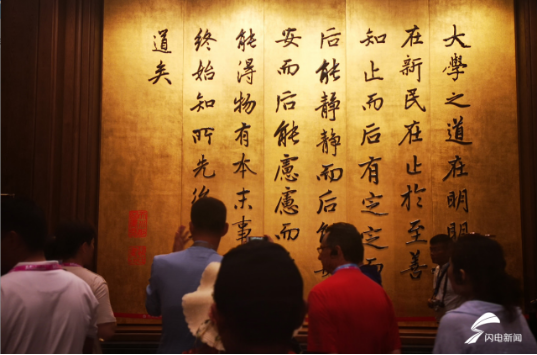 大學之道在明明
在新民在止於至善
知止而后有定定而
后能静静而后能
安而后能慮慮而
能得物有本末事
终始知所先後
道矣
闪电新闻